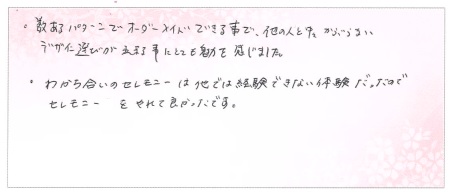 ・数あるパターンでオーダーメイドできる事で、他の人とかぶらない
デザイン選びが出来る事にとても魅力を感じました。
・わかち合いのセレモニーは他では経験できない体験だったので
セレモニーをやれて良かったです。